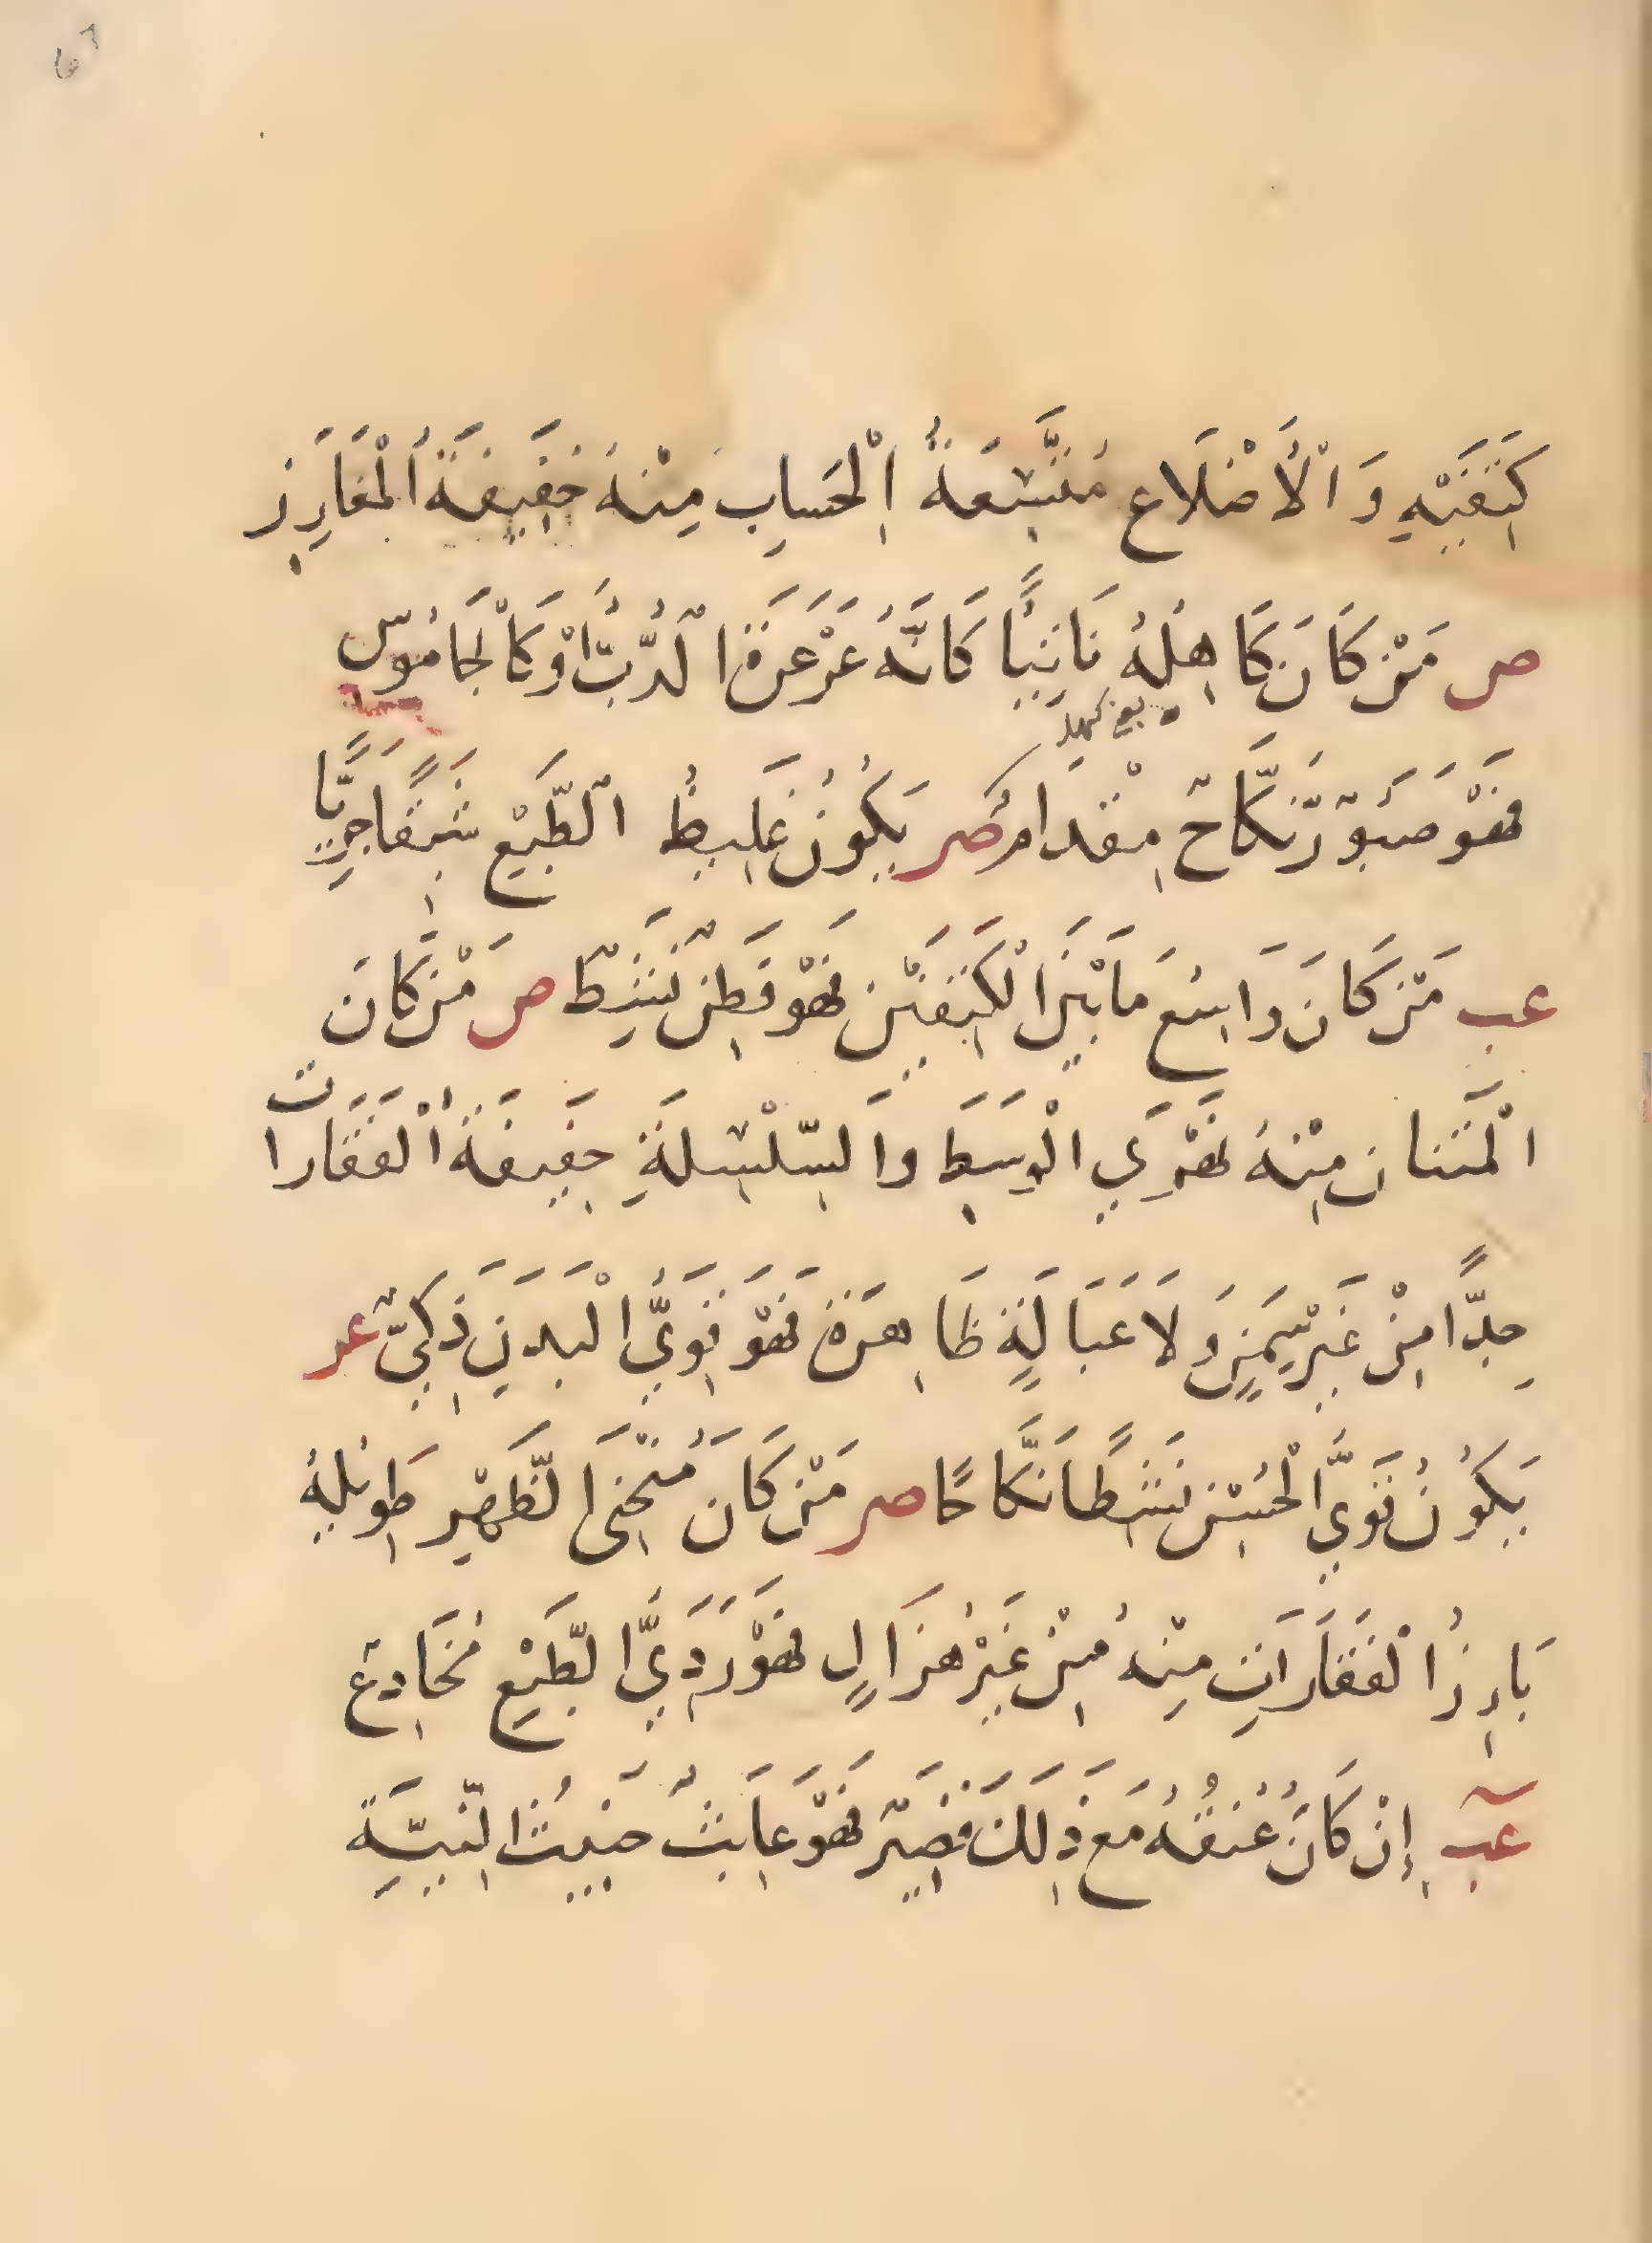 كَتِفَيْهِ وَالْأَضْلَاع مُتَّسِعَةُ الْحَسابِ مِنْهُ خَفِيفَةَ الْمَغَارِزِ
ص مَنْ كَانَ كَاهِلُهُ نَاتِيًا كَانَّهُ عَرْعَرَةَ الْدُّبِّ أَوْ كَالْجَامُوس
فَهْوَ صَبُورٌ نَكَّاحٌ مِقْدَامٌ صر يَكُونُ غَلِيظُ الطَّبَعِ شَبِقًا جَرِيًّا
عب مَنْ كَانَ وَاسِعَ مَا بَيْنَ الْكَتِفَيْنِ فَهْوَ فَطِنٌ نَشِطٌ ص مَنْ كَانَ
الْمَتنان مِنْهُ نَهْرَي الْوَسَطِ وَالسّلْسِلَةِ خَفِيفَةُ الْفَقَارات
جِدًّا مِنْ غَيْرِ سِمَنٍ وَلَا عَبَالَةٍ ظَاهِرَةٍ فَهْوَ قَوِيُّ الْبَدَنِ ذَكِيٌّ عر
يَكُونُ قَوِيَّ الْحُسْنِ نَشِطًا نَكَّاحًا صر مَنْ كَانَ مُنْحَنِى الظَّهْرِ طَوِيْلَهُ
بَارِزُ الْفَقَارَاتِ مِنْهُ مِنْ غَيْرِ هُزَالٍ فَهْوَ رَدِيُّ الطَّبَعِ مُخَادِعٌ
عب إِنْ كَانَ عُنُقُهُ مَع ذَلِكَ قَصِيْرٌ فَهْوَ عَابِثٌ خَبِيْثُ النِّيَّةِ